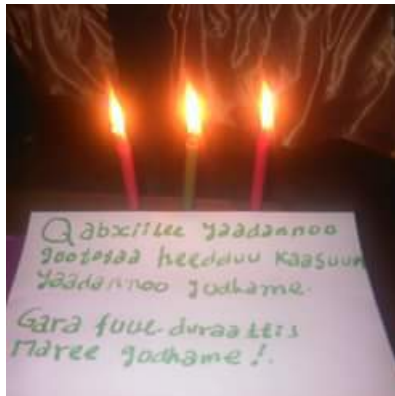 Qabxiilee yaadannoo
gootosaa heedduu kaasuun
yaadannoo godhame.
Gara fuul-duraattis
Maree godhame!.